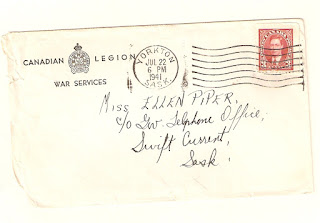 CANADIAN LEGION
WAR SERVICES
YORKTON
JUL 22
6 PM
1941
SASK.
CANADA
Miss ELLEN PIPER,
c/o Gov. Telphone Office,
Swift Current,
Sask.